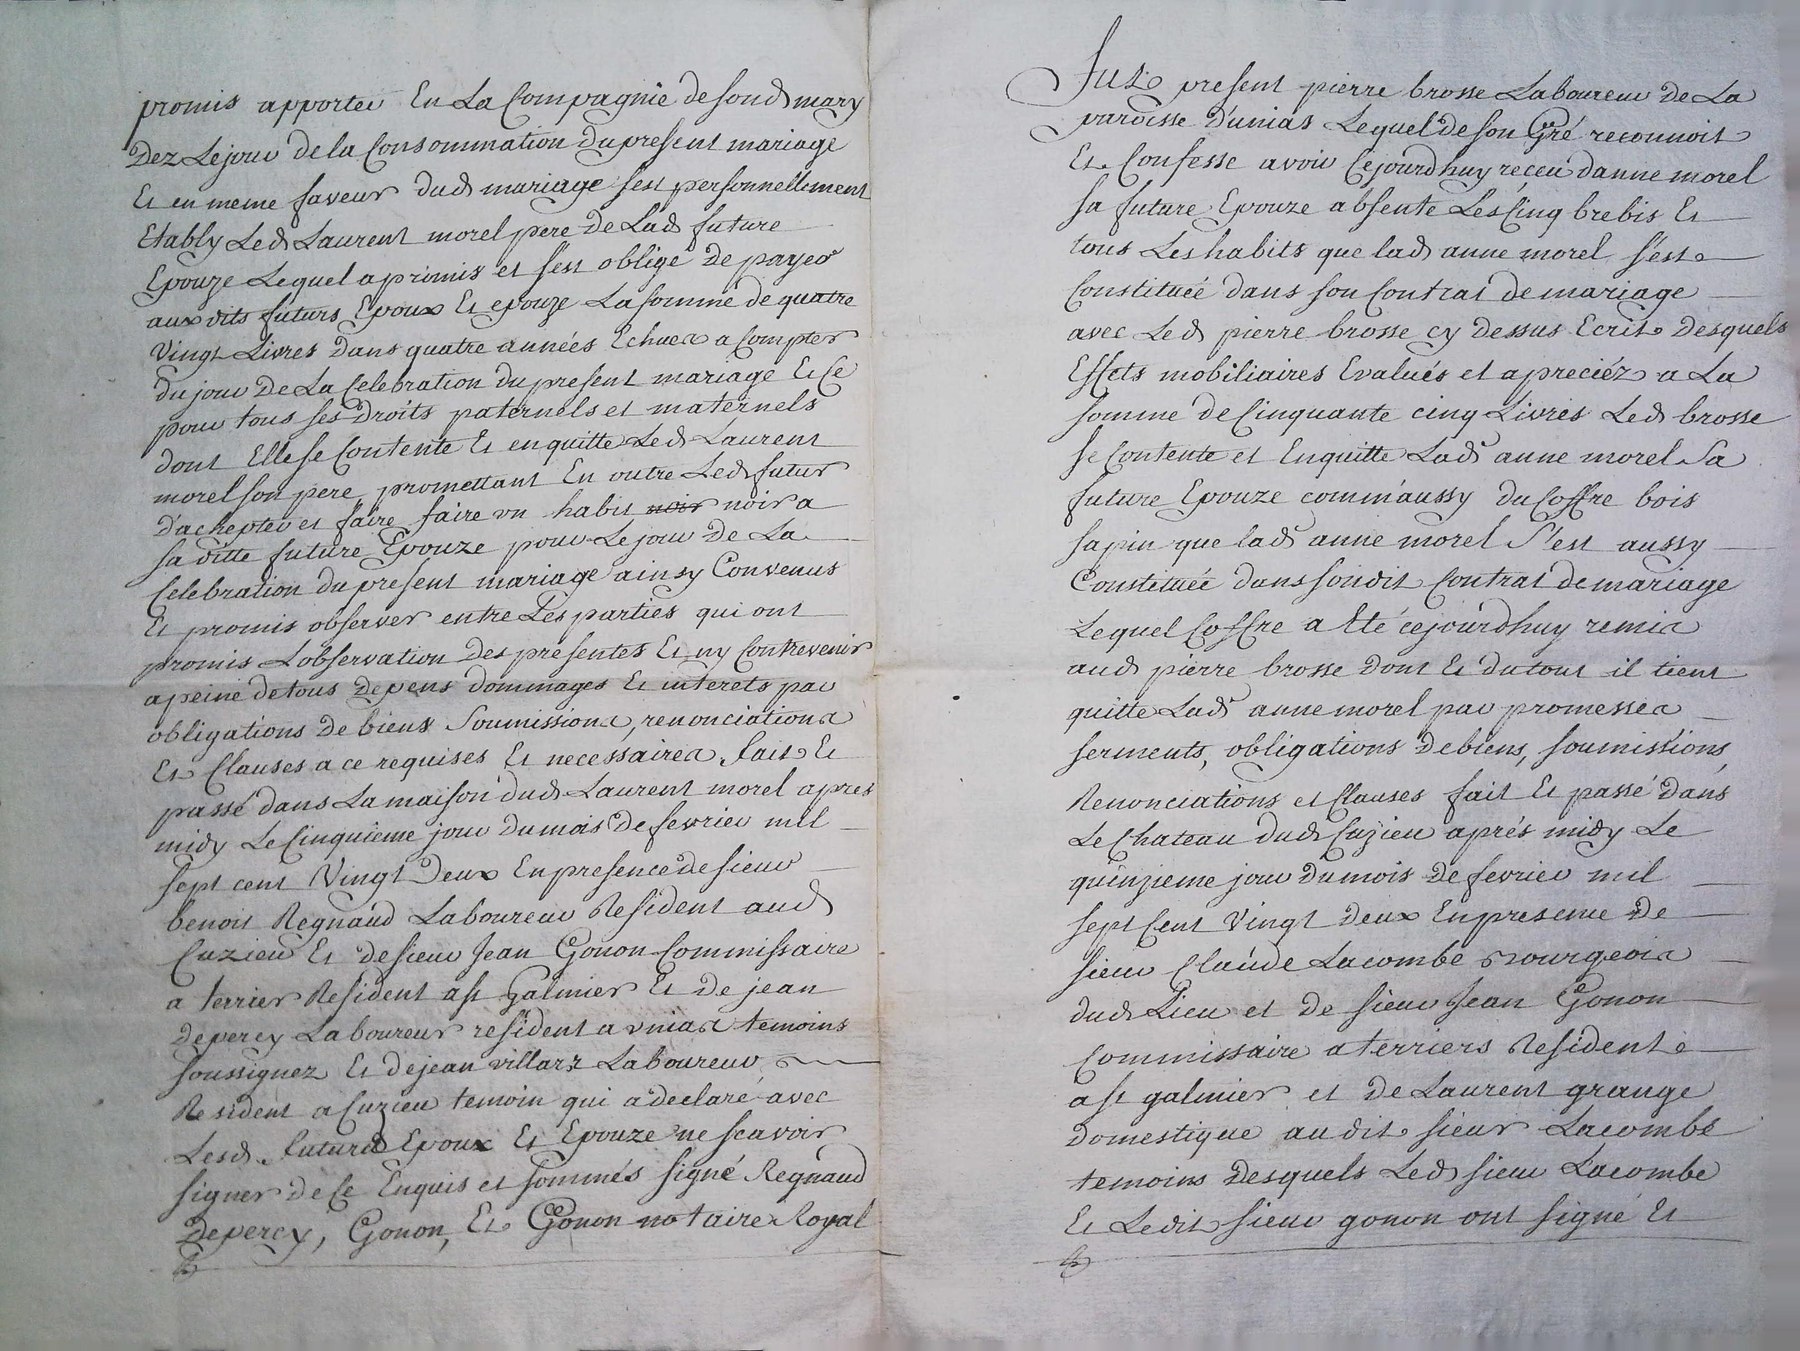 promis apporter En La Compagnie de sond mary
Dez Le jour de la Consommation du present mariage
Et en meme faveur dud mariage sest personnellement
Etably Led Laurent morel pere de Lad future
Epouze Lequel a promis et sest obligé de payer
aux dits futurs Epoux Et epouze La somme de quatre
Vingt Livres Dans quatre années Echues a Compter
du jour De La Celebration du present mariage Et Ce
pour tous ses Droits paternels et maternels
dont Elle se Contente Et en quitte Led Laurent
morel son pere, promettant En outre Led futur
D'achepter et faire faire un habit noir noir a
sa ditte future Epouze pour Le jour De La
Celebration du present mariage ainsy Convenus
Et promis observer entre Les parties qui ont
promis Lobservation Des presentes Et ny Contrevenir
a peine de tous Depens dommages Et interets par
obligations De biens Soumissions, renonciations
Et Clauses a ce requises Et necessaires, fait Et
passé dans La maison dud Laurent morel apres
midy Le Cinquieme jour du mois De fevrier mil
sept cent Vingt Deux En presence de sieur
benoit Regnaud Laboureur Resident aud
Cuzieu Et de sieur Jean Gonon Commissaire
a terrier Resident a st Galmier Et De jean
Depercy Laboureur resident a Unias temoins
soussignez Et de jean villars Laboureur
Resident a Cuzieu temoin qui a declaré avec
Lesd futurs Epoux Et Epouze ne scavoir
signer de Ce Enquis et sommés signé Regnaud
Depercy, Gonon, Et Gonon notaire Royal
fut present pierre brosse Laboureur De La
paroisse D'unias Lequel de son Gré reconnoit
Et Confesse avoir Cejourdhuy réçeu danne morel
sa future Epouze absente Les Cinq brebis Et
tous Les habits que lad anne morel s'est
Constituée dans son Contrat de mariage
avec Led pierre brosse cy dessus Ecrit Desquels
Effets mobiliaires Evalués et apreciéz a La
somme de Cinquante cinq Livres Led brosse
se Contente et Enquitte Lad anne morel Sa
future Epouze comm'aussy du Coffre bois
sapin que lad anne morel S'est aussy
Constituée dans sondit Contrat de mariage
Lequel Coffre a Eté cejourdhuy remis
aud pierre brosse Dont Et du tout il tient
quitte Lad anne morel par promesses
serments, obligations De biens, soumissions,
Renonciations et Clauses fait Et passé Dans
Le Chateau dud Cuzieu aprés midy Le
quinzieme jour Du mois De fevrier mil
sept Cent Vingt Deux En presence De
sieur Claude Lacombe Bourgeois
dud Lieu et De sieur Jean Gonon
Commissaire a terriers Resident
a st galmier et De Laurent grange
Domestique audit sieur Lacombe
temoins Desquels Led sieur Lacombe
Et Ledit sieur gonon ont signé Et